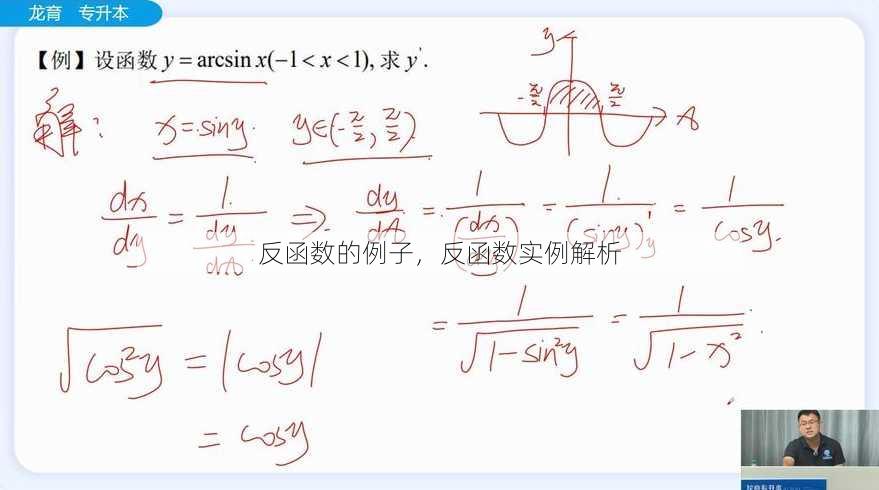 龙育 专升本
【例】设函数 y = arcsin x(−1 < x < 1), 求 y'.
解: x = siny. y∈(-π/2, π/2)
y
-π/2 π/2
x
dx/dy = 1/(dy/dx) ⇒ dy/dx = 1/(dx/dy) = 1/(siny)'y = 1/cosy.
反函数的例子，反函数实例解析
= 1/√(1-sin²y) = 1/√(1-x²).
√cos²y = |cosy|
= cosy